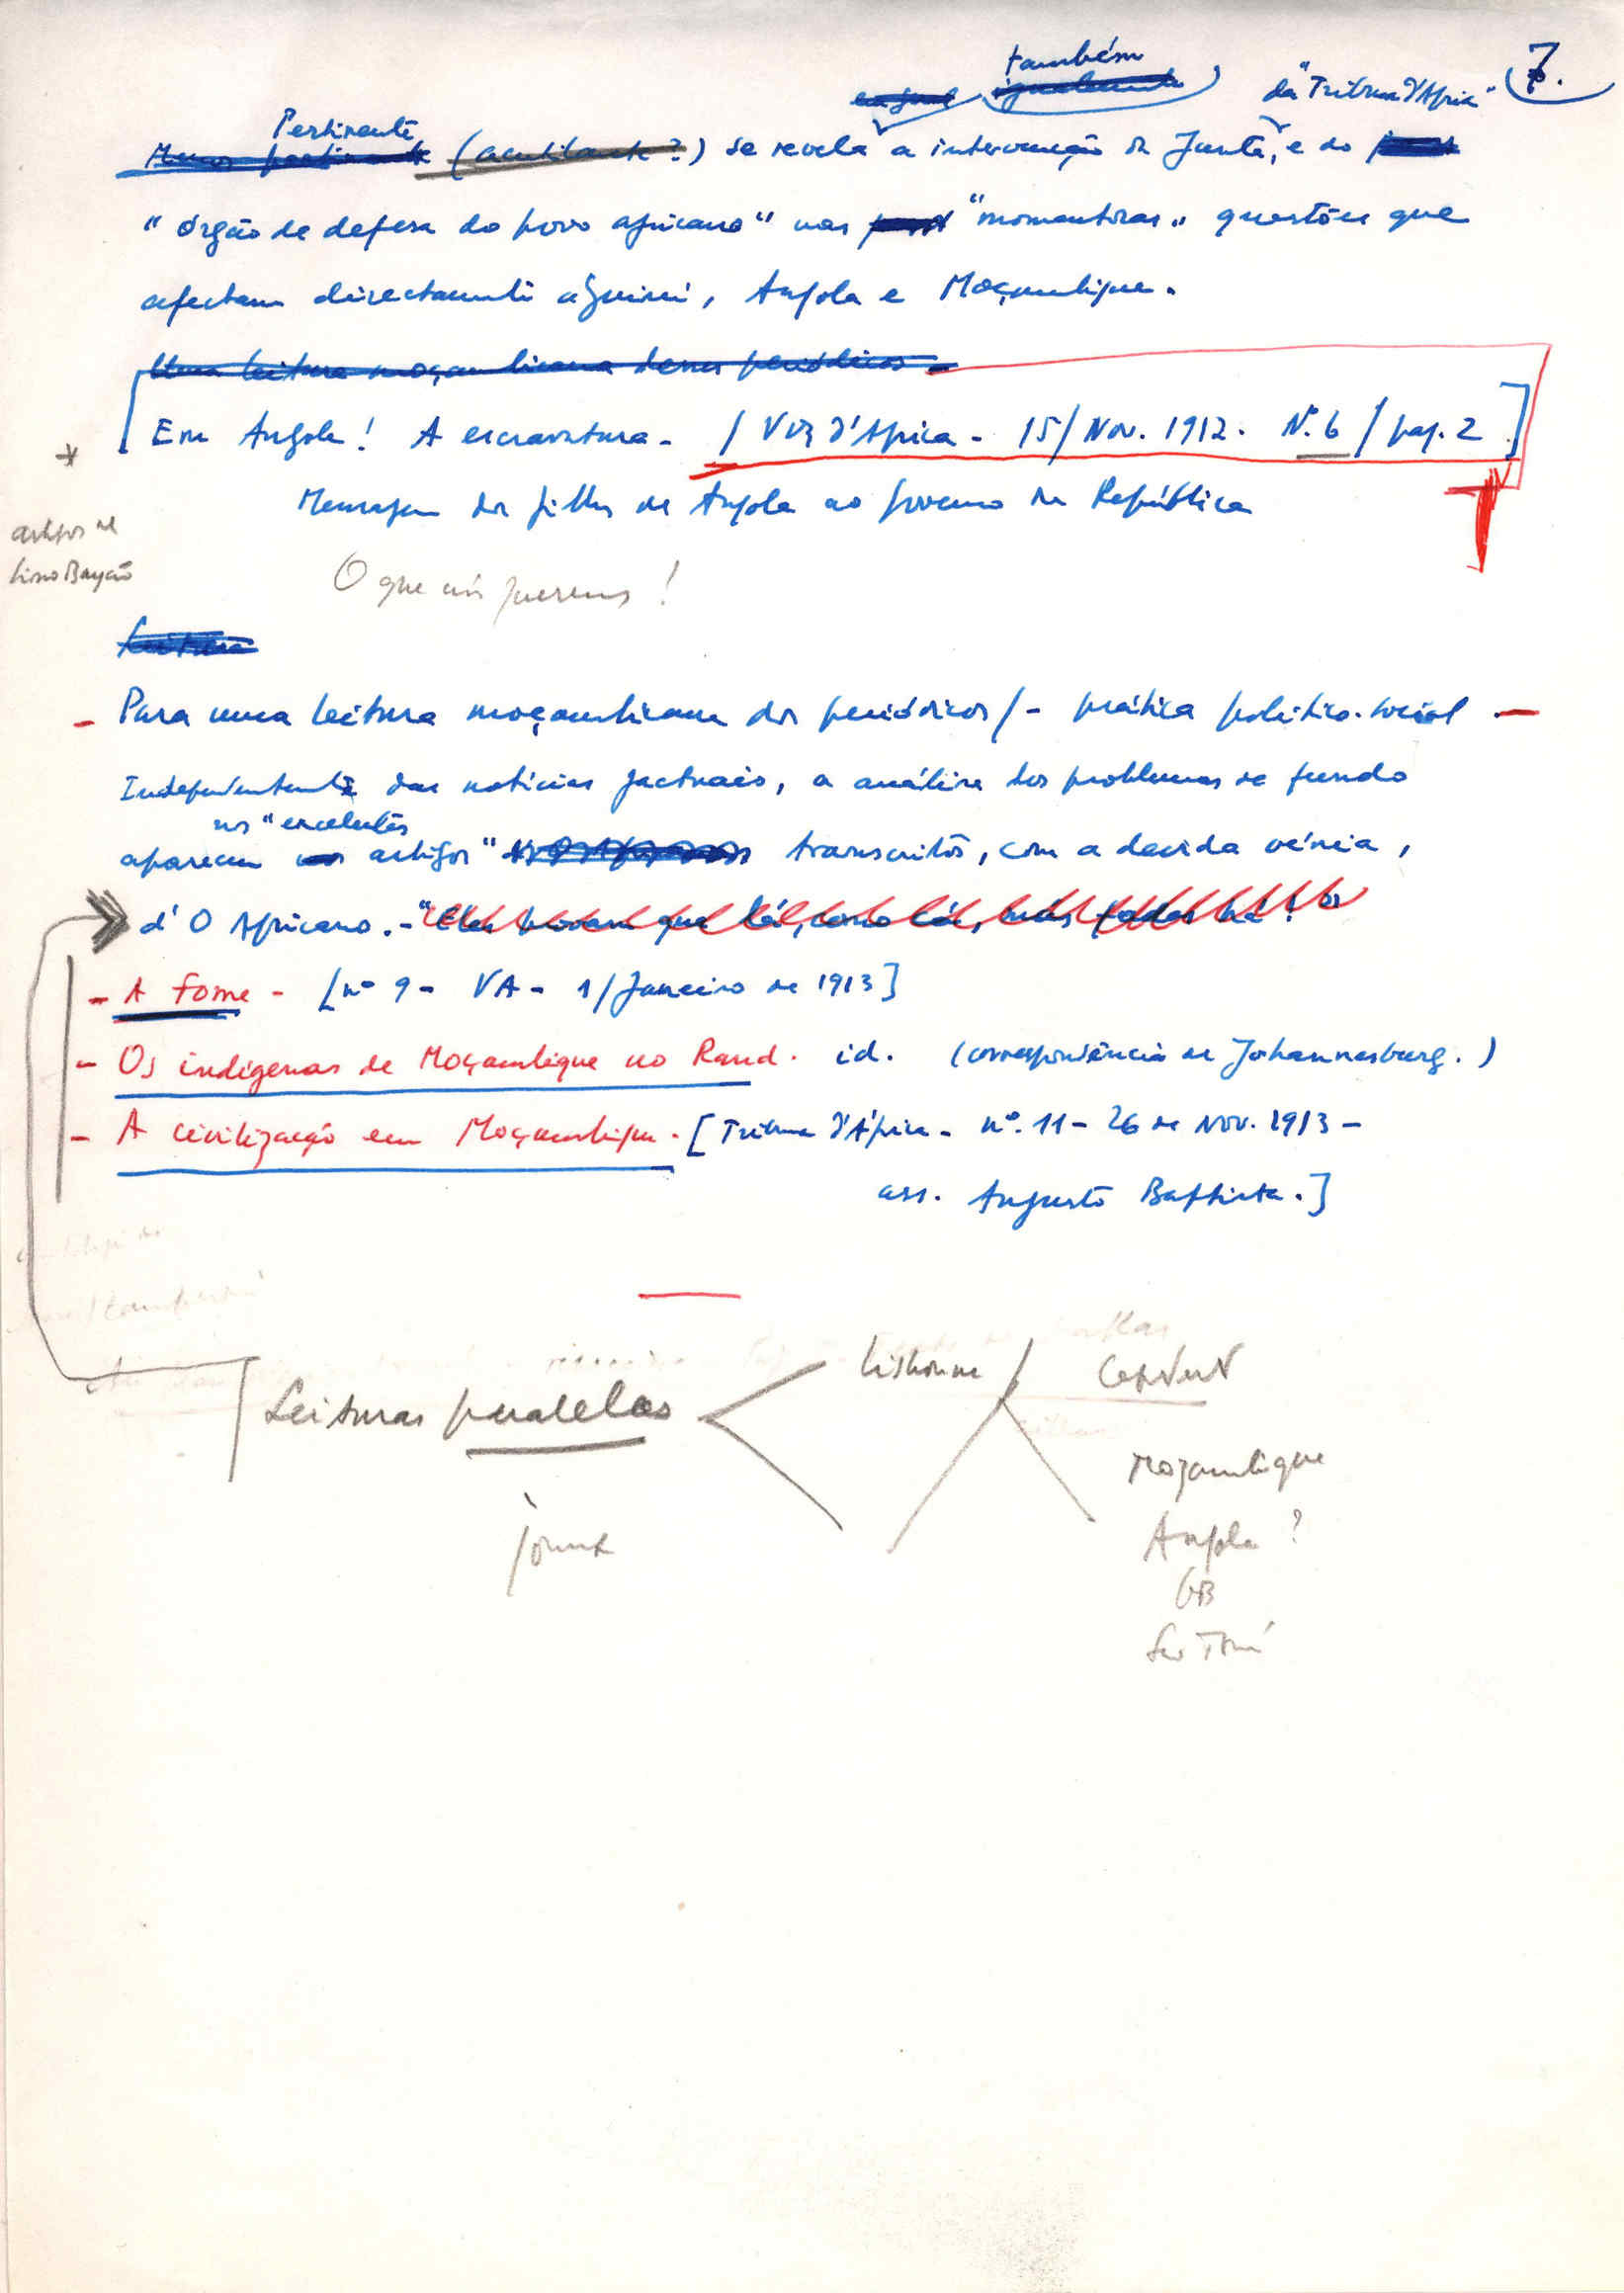 7.
também
da "Tribuna d'África"
Pertinente
(acutilante?) se revela a intervenção da Junta, e do
" órgão de defesa do povo africano" nas "momentosas" questões que
afectam directamente a Guiné, Angola e Moçambique.
Uma leitura moçambicana desses periódicos
[Em Angola! A escravatura - / Voz d'Africa - 15/Nov. 1912. Nº. 6 / pag. 2]
Mensagem dos filhos de Angola ao governo da República
artigos de
Lino Bayão
O que nós queremos!
Leitura
- Para uma leitura moçambicana dos periódicos / - prática político-social -
Independente das notícias factuais, a análise dos problemas de fundo
nos "excelentes
aparecem artigos" transcritos, com a devida vénia,
d' O Africano. - "Elas provam que lá, como cá, más fadas há!"
- A Fome - [nº 9 - VA - 1/Janeiro de 1913]
- Os indígenas de Moçambique no Rand. id. (correspondência de Johannesburg.)
- A civilização em Moçambique. [Tribuna d'África - nº. 11 - 26 de Nov. 1913 -
ass. Augusto Baptista.]
Leituras paralelas
Lisbonne
Moçambique
Angola ?
GB
São Tomé